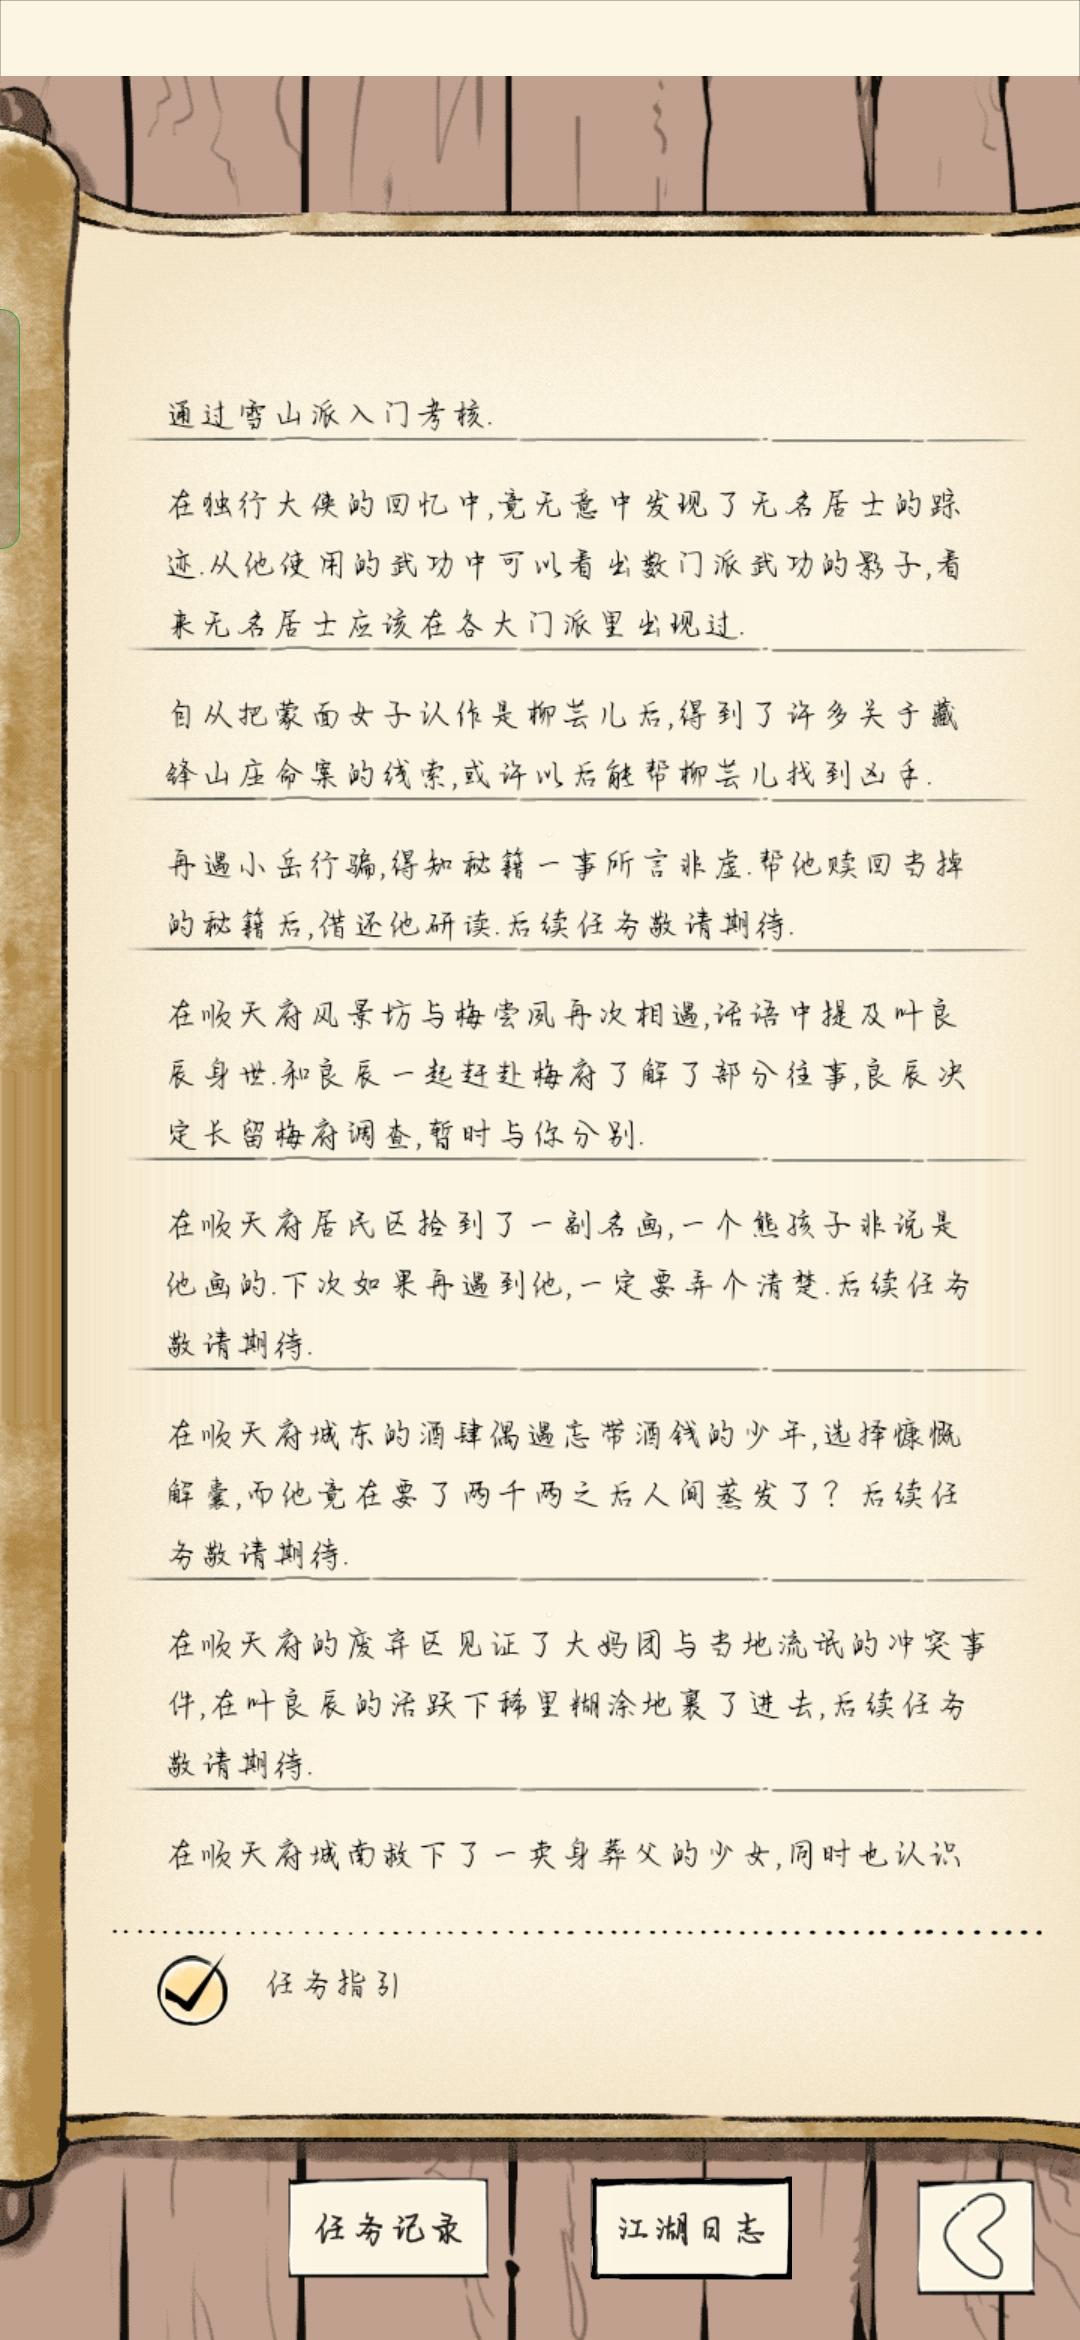 通过雪山派入门考核.
在独行大侠的回忆中,竟无意中发现了无名居士的踪
迹.从他使用的武功中可以看出数门派武功的影子,看
来无名居士应该在各大门派里出现过.
自从把蒙面女子认作是柳芸儿后,得到了许多关于藏
锋山庄命案的线索,或许以后能帮柳芸儿找到凶手.
再遇小岳行骗,得知秘籍一事所言非虚.帮他赎回当掉
的秘籍后,借还他研读.后续任务敬请期待.
在顺天府风景坊与梅尝凤再次相遇,话语中提及叶良
辰身世.和良辰一起赶赴梅府了解了部分往事,良辰决
定长留梅府调查,暂时与你分别.
在顺天府居民区拾到了一副名画,一个熊孩子非说是
他画的.下次如果再遇到他,一定要弄个清楚.后续任务
敬请期待.
在顺天府城东的酒肆偶遇忘带酒钱的少年,选择慷慨
解囊,而他竟在要了两千两之后人间蒸发了? 后续任
务敬请期待.
在顺天府的废弃区见证了大妈团与当地流氓的冲突事
件,在叶良辰的活跃下稀里糊涂地裹了进去,后续任务
敬请期待.
在顺天府城南救下了一卖身葬父的少女,同时也认识
任务指引
任务记录
江湖日志